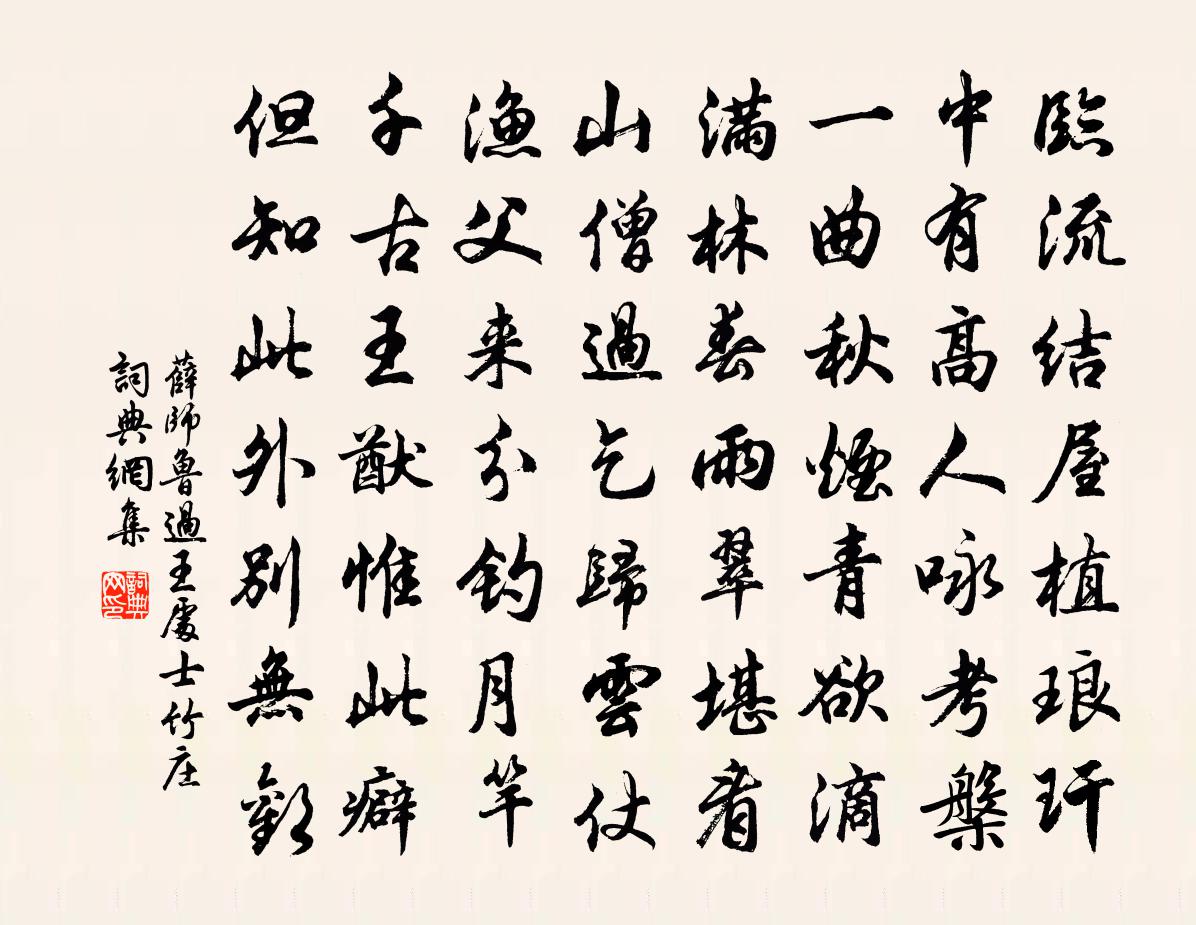 臨流結屋植琅玕
中有高人咏考槃
一曲秋煙青欲滴
滿林春雨翠堪看
山僧過乞歸雲仗
漁父来分釣月竿
千古王猷惟此癖
但知此外别無歡
薛師魯過王處士竹庄
詞典網集
詞典网印